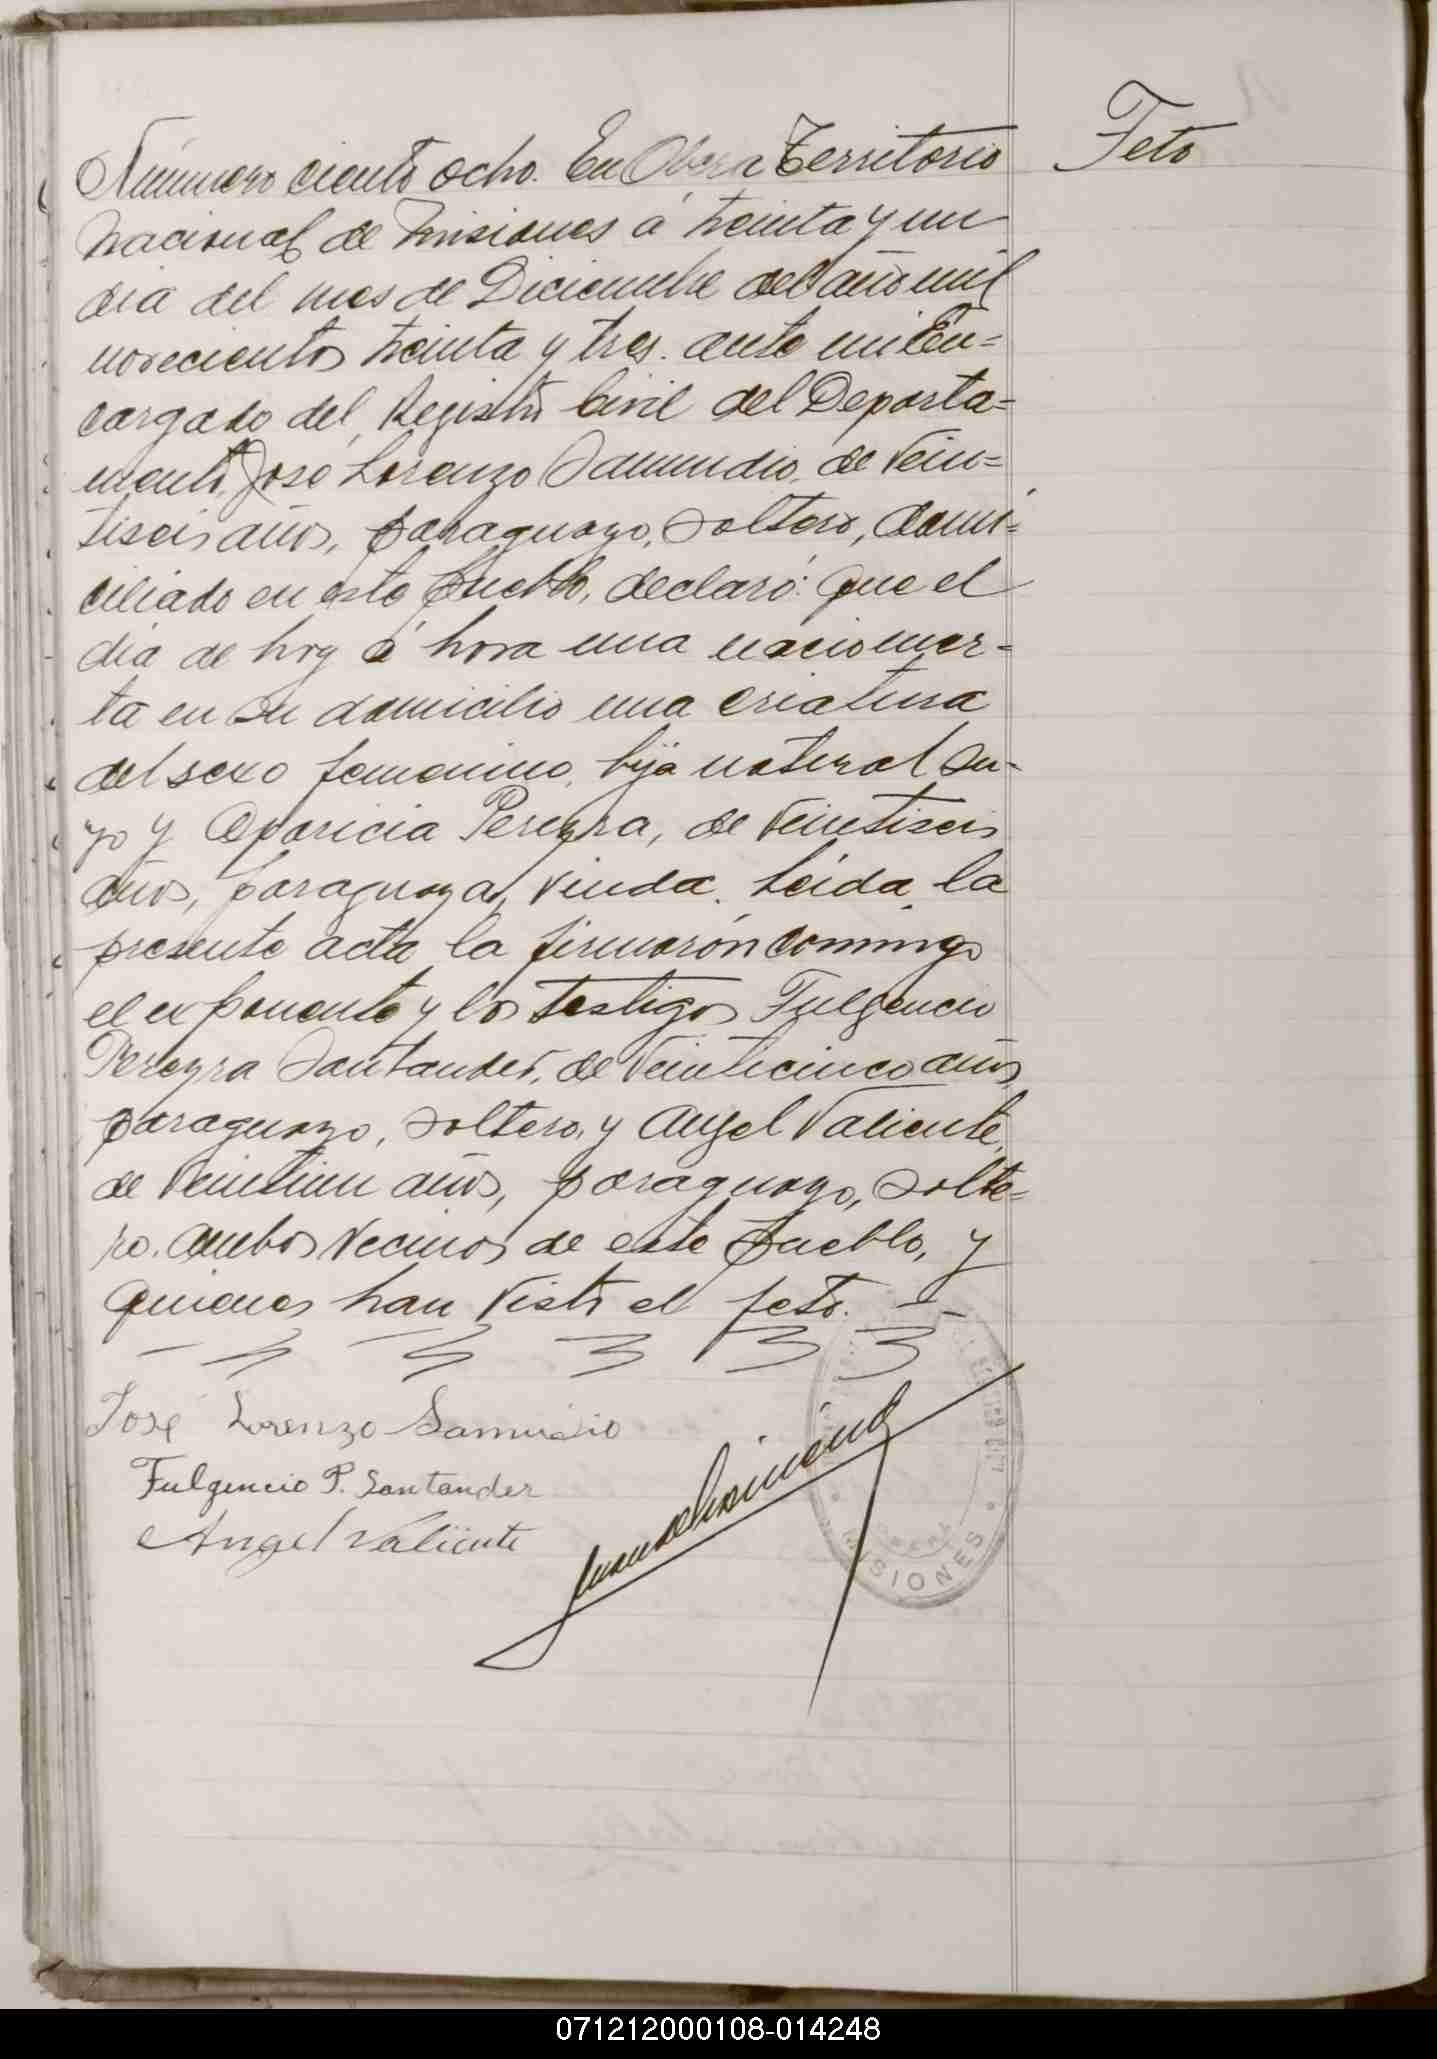 Feto
Número ciento ocho. En Oberá Territorio
Nacional de Misiones á treinta y un
dia del mes de Diciembre del año mil
novecientos treinta y tres. ante mi En=
cargado del Registro Civil del Departa=
mento, José Lorenzo Samudio, de vein=
tiseis años, paraguayo, soltero, domi=
ciliado en este pueblo, declaró: Que el
dia de hoy á hora una nacio muer=
ta en su domicilio una criatura
del sexo femenino, hija natural su-
yo y Aparicia Pereyra, de veintiseis
años, paraguaya, viuda. Leida la
presente acta la firmarón conmigo
el exponente y los testigos Fulgencio
Pereyra Santander, de veinticinco años
paraguayo, soltero, y Angel Valiente,
de veintiun años, paraguayo, solte=
ro. ambos vecinos de este pueblo, y
quienes han visto el feto.
José Lorenzo Samudio
Fulgencio P. Santander
Angel Valiente
MISIONES
071212000108-014248